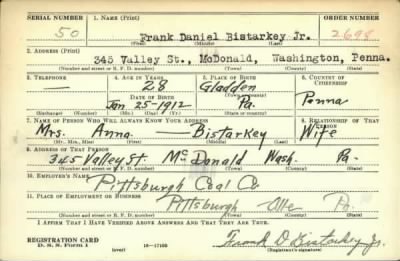 SERIAL NUMBER 1. NAME (Print) ORDER NUMBER
50 Frank Daniel Bistarkey Jr. 2698
(First) (Middle) (Last)
2. ADDRESS (Print)
345 Valley St., McDonald, Washington, Penna.
(Number and street or R. F. D. number) (Town) (County) (State)
3. TELEPHONE 4. AGE IN YEARS 5. PLACE OF BIRTH 6. COUNTRY OF CITIZENSHIP
— 28 Gladden
DATE OF BIRTH (Town or county)
Jan 25-1912 Pa. Penna
(Exchange) (Number) (Mo.) (Day) (Yr.) (State or country)
7. NAME OF PERSON WHO WILL ALWAYS KNOW YOUR ADDRESS 8. RELATIONSHIP OF THAT PERSON
Mrs. Anna — Bistarkey Wife
(Mr., Mrs., Miss) (First) (Middle) (Last)
9. ADDRESS OF THAT PERSON
345 Valley St. McDonald Wash. Pa.
(Number and street or R. F. D. number) (Town) (County) (State)
10. EMPLOYER'S NAME
Pittsburgh Coal Co
11. PLACE OF EMPLOYMENT OR BUSINESS
Pittsburgh Alle Pa.
(Number and street or R. F. D. number) (Town) (County) (State)
I AFFIRM THAT I HAVE VERIFIED ABOVE ANSWERS AND THAT THEY ARE TRUE.
REGISTRATION CARD
D. S. S. Form 1 (over) 16—17105 Frank D Bistarkey Jr.
(Registrant's signature)